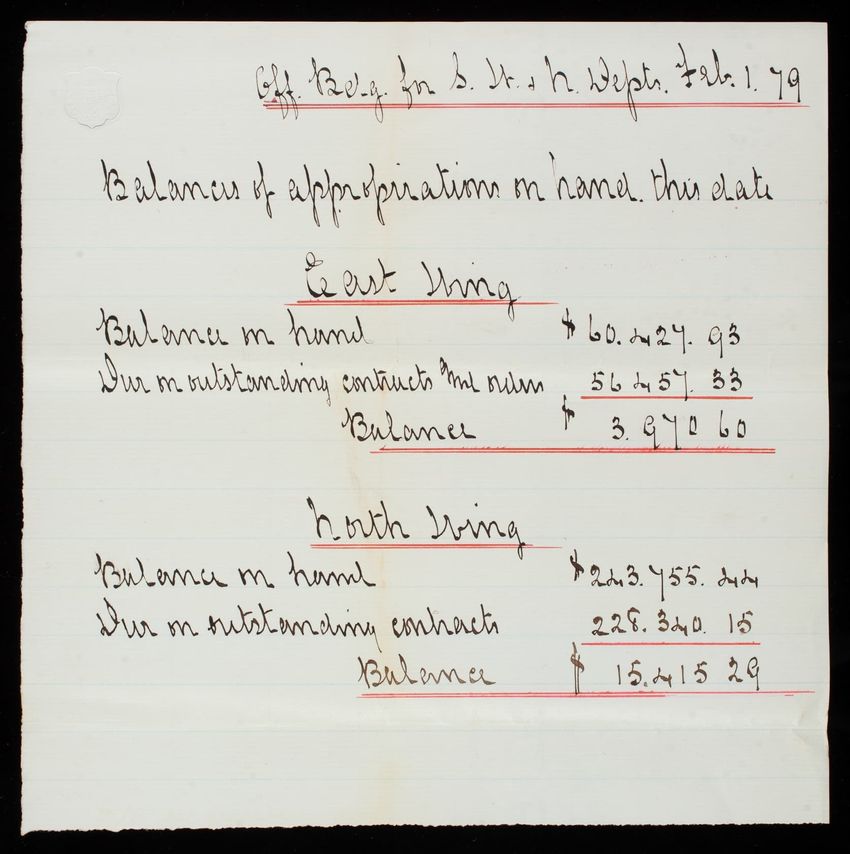 Off. Bldg. for S. W. & N. Depts. Feb. 1. 79
Balances of appropriations on hand. this date
East Wing
Balance on hand $60.427.93
Due on outstanding contracts and orders 56 457.33
Balance $3.970 60
North Wing
Balance on hand $243.755.44
Due on outstanding contracts 228.340.15
Balance $15.415 29